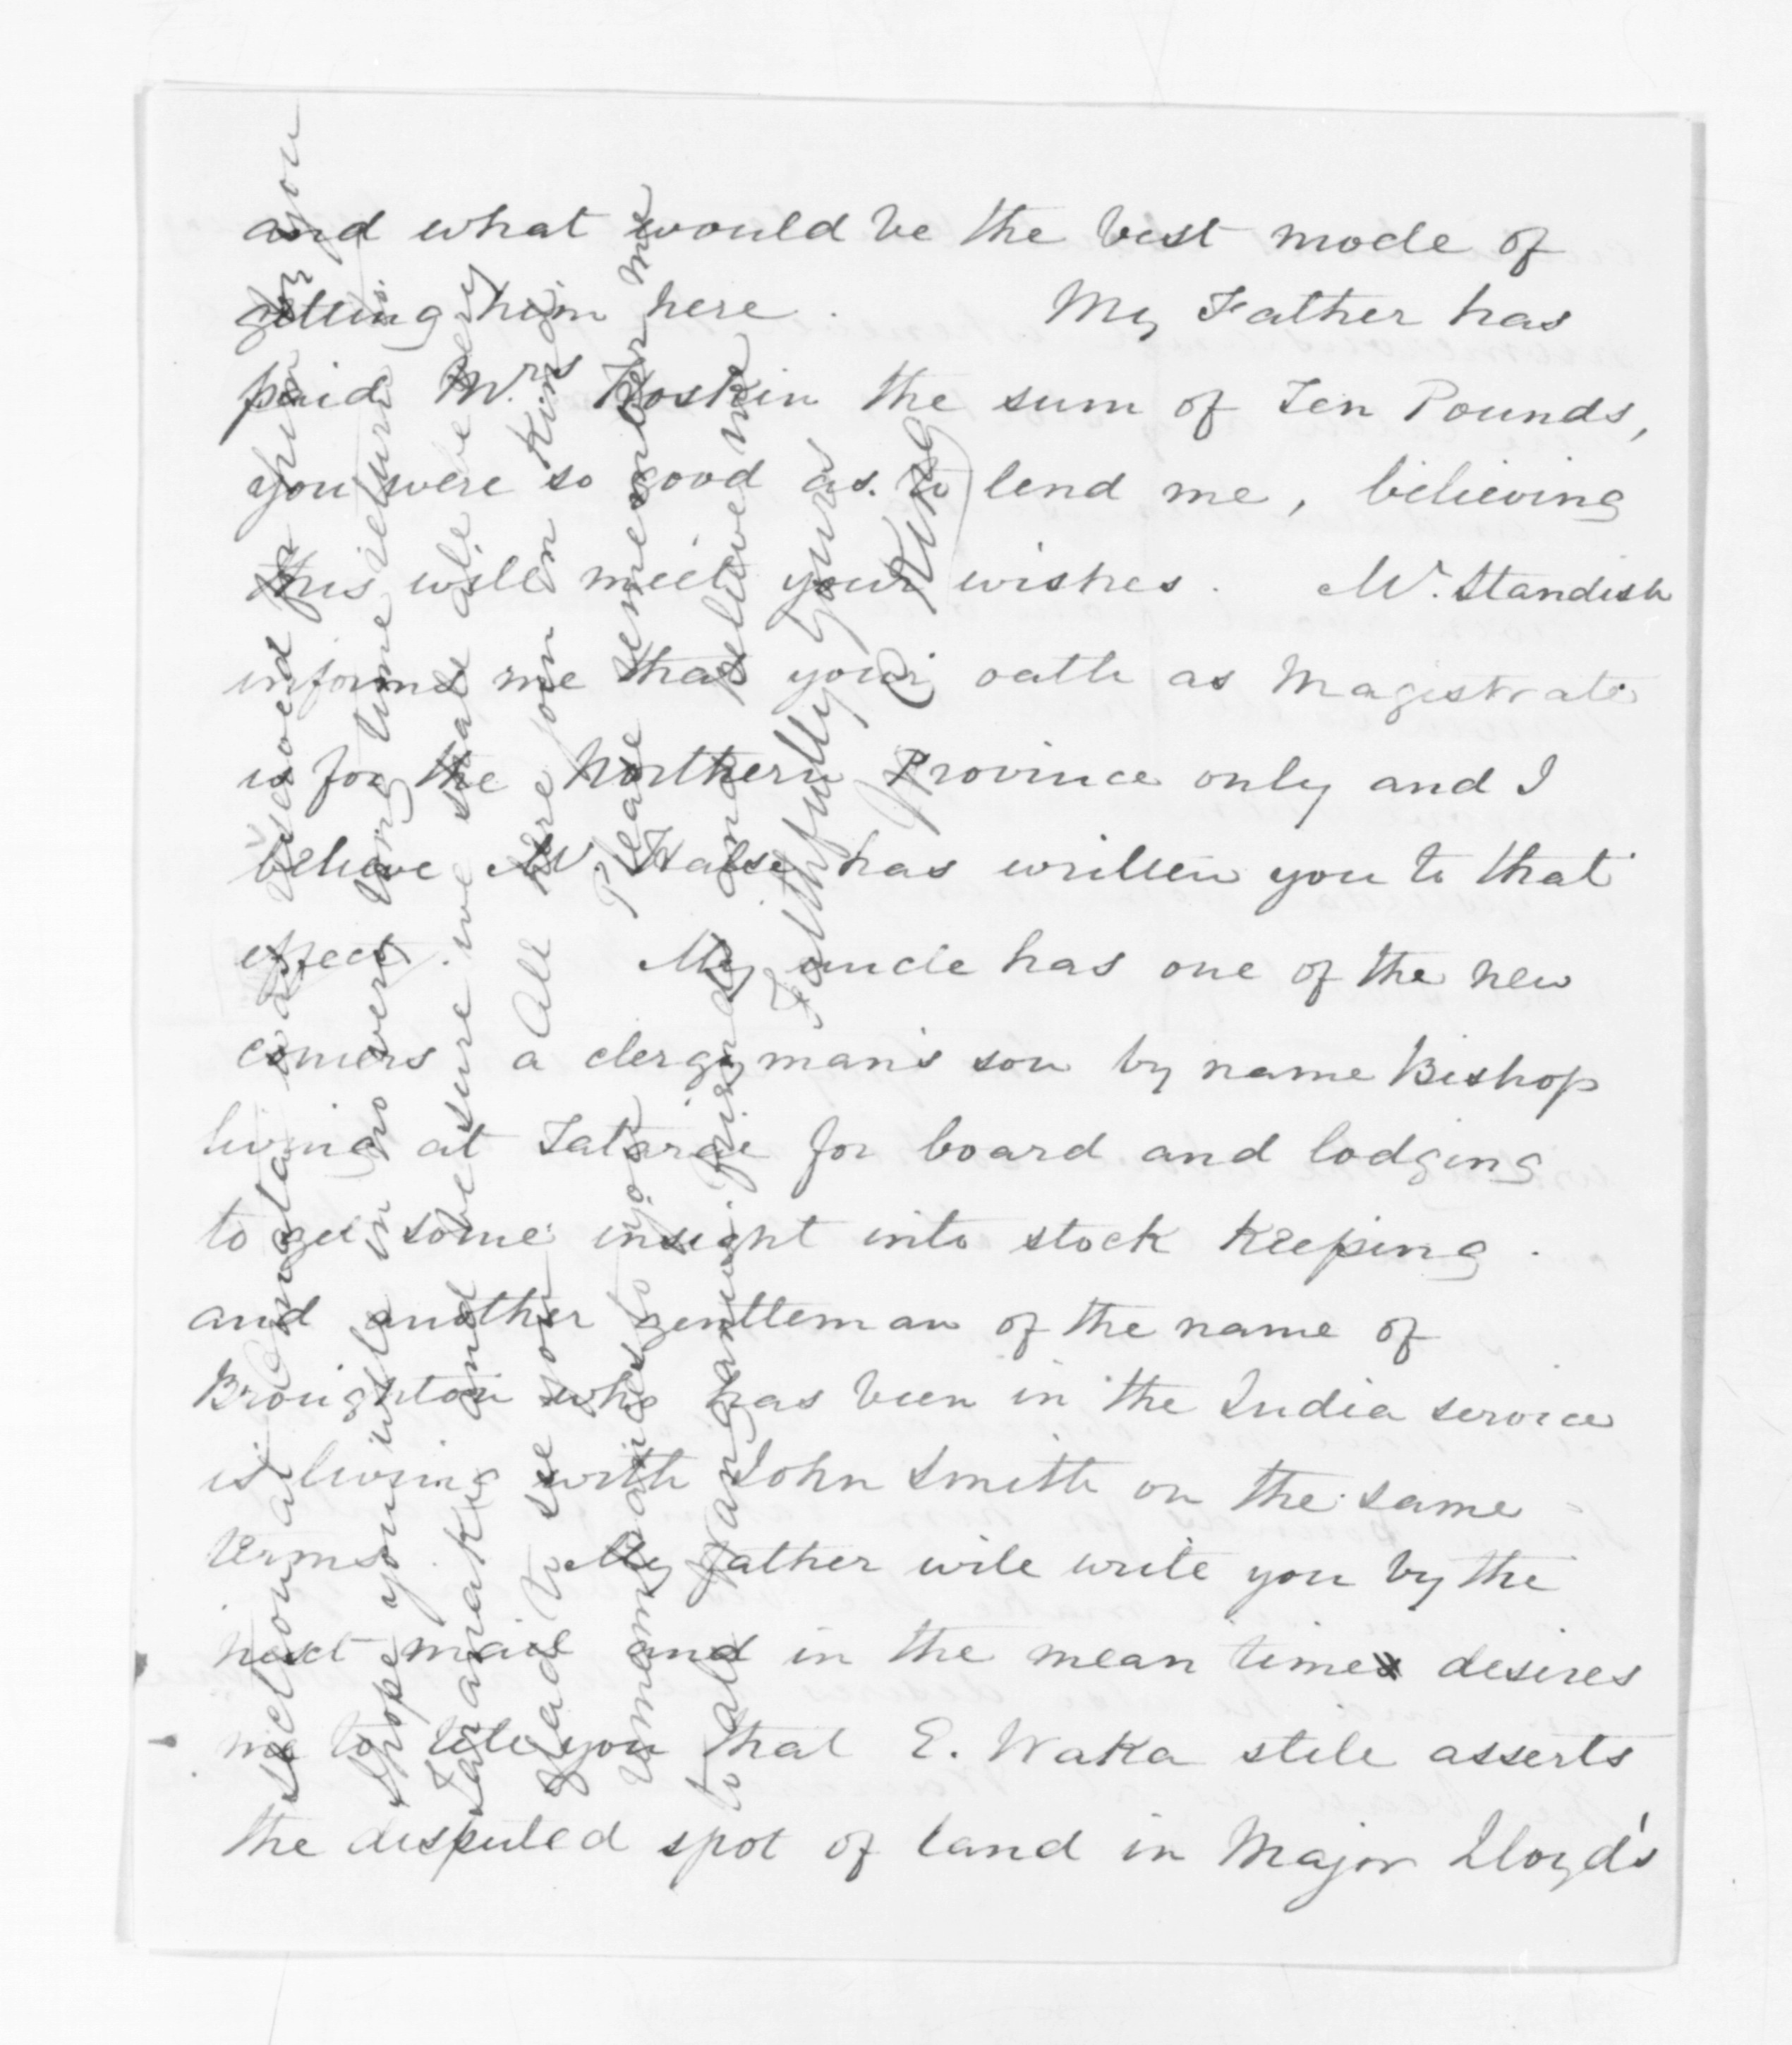 and what would be the best mode of
getting him here. My Father has
paid Mrs Hoskin the sum of Ten Pounds,
you were so good as to lend me, believing
this will meet your wishes. Mr. Standish
informs me that your oath as Magistrate
is for the Northern Province only and I
believe Mr. Halse has written you to that
effect. My uncle has one of the new
comers a clergyman's son by name Bishop
living at Tataraie for board and lodging
to get some insight into stock keeping.
and another gentleman of the name of
Broughton who has been in the India service
is living with John Smith on the same
terms. My father will write you by the
next mail and in the mean time desires
me to tell you that E. Waka still asserts
the disputed spot of land in Major Lloyd's
section at Omata was reserved for him by you
I hope you will in no very long time return to
Taranaki and be sure we shall all be very
glad to see you. All here join in kind
remembrances to you Please remember me
to all Wanganui friends and believe me
Faithfully yours
W C King